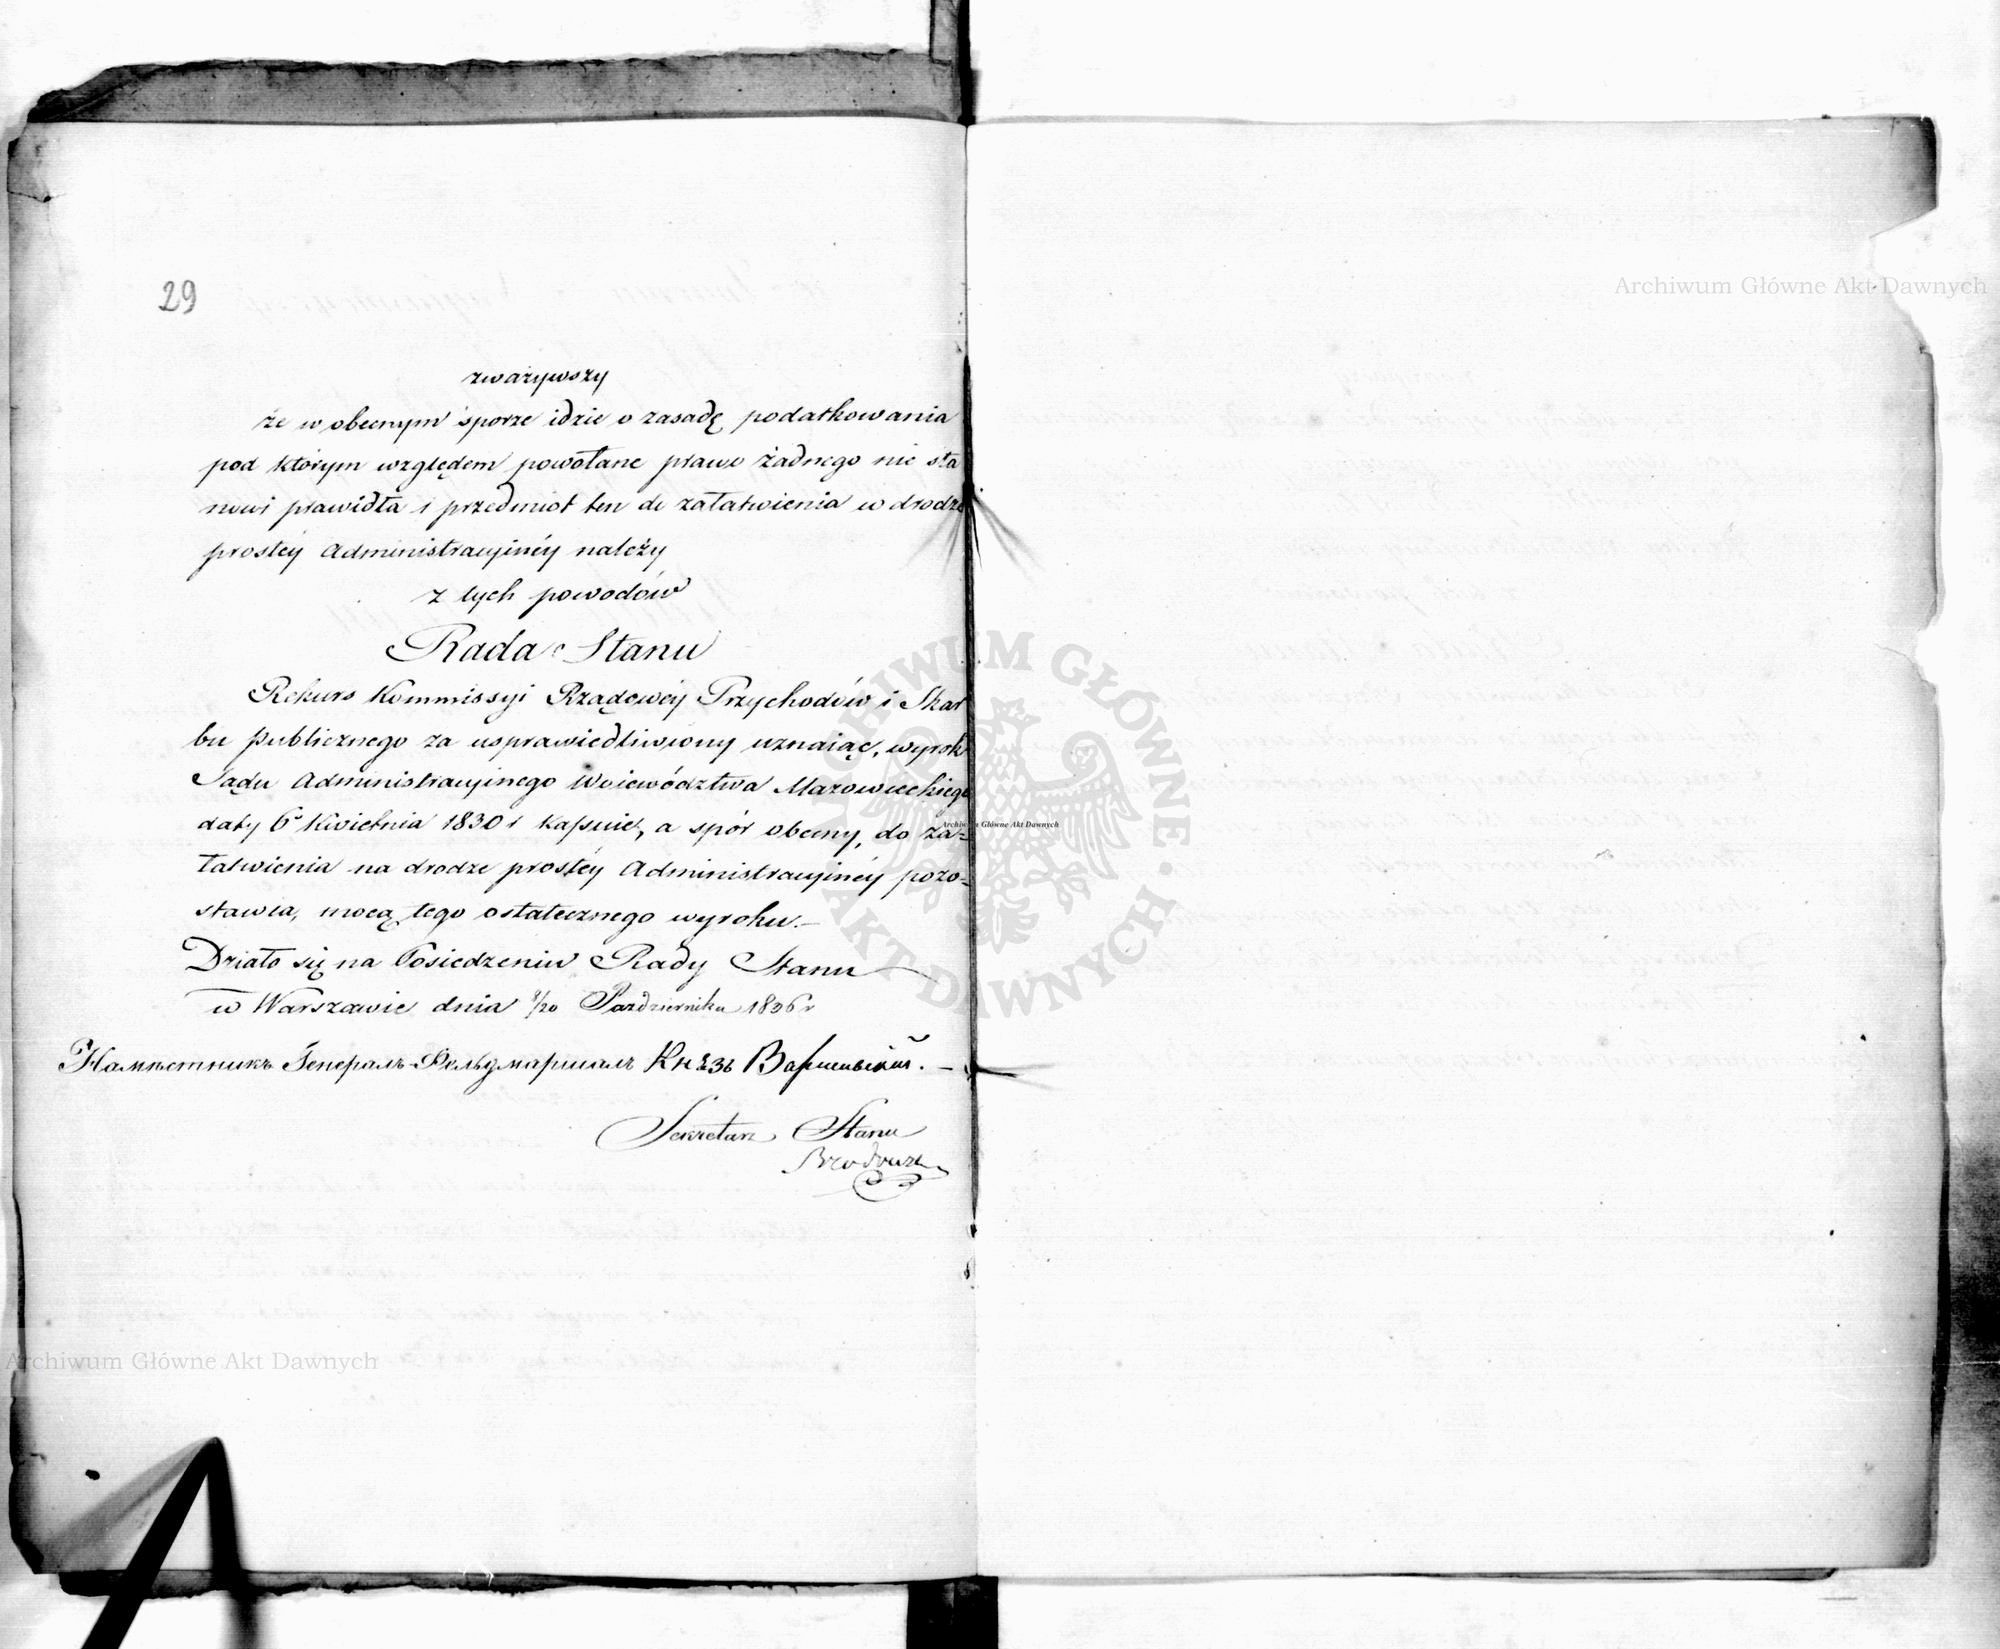 29
zważywszy
że w obecnym sporze idzie o zasadę podatkowania
pod którym względem powołane prawo żadnego nie sta
nowi prawidła i przedmiot ten do załatwienia w drodze
prostéy Administracyinéy należy
z tych powodów
Rada Stanu
Rekurs Kommissyi Rządowéy Przychodów i Skar
bu publicznego za usprawiedliwiony uznaiąc, wyrok
Sądu Administracyinego Woiewództwa Mazowieckiego
daty 6 Kwietnia 1830 r kassuie, a spór obecny, do za=
łatwienia na drodze prostéy Administracyinéy pozo=
stawia, mocą tego ostatecznego wyroku.—
Działo się na Posiedzeniu Rady Stanu
w Warszawie dnia 8/20 Października 1836 r
Намѣстникъ Генералъ-Фельдмаршалъ Князь Варшавскій.—
Sekretarz Stanu
Archiwum Główne Akt Dawnych
Archiwum Główne Akt Dawnych
Archiwum Główne Akt Dawnych
ARCHIWUM GŁÓWNE · AKT DAWNYCH ·